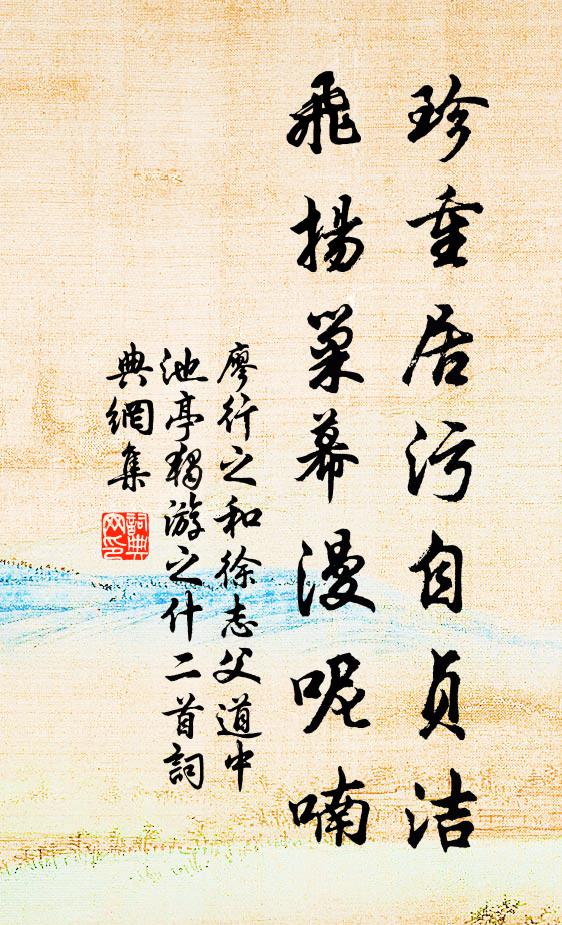 珍重居污自贞洁
飛揚巢幕漫呢喃
廖行之和徐志父道中
池亭獨游之什二首詞
典網集
詞典
网印